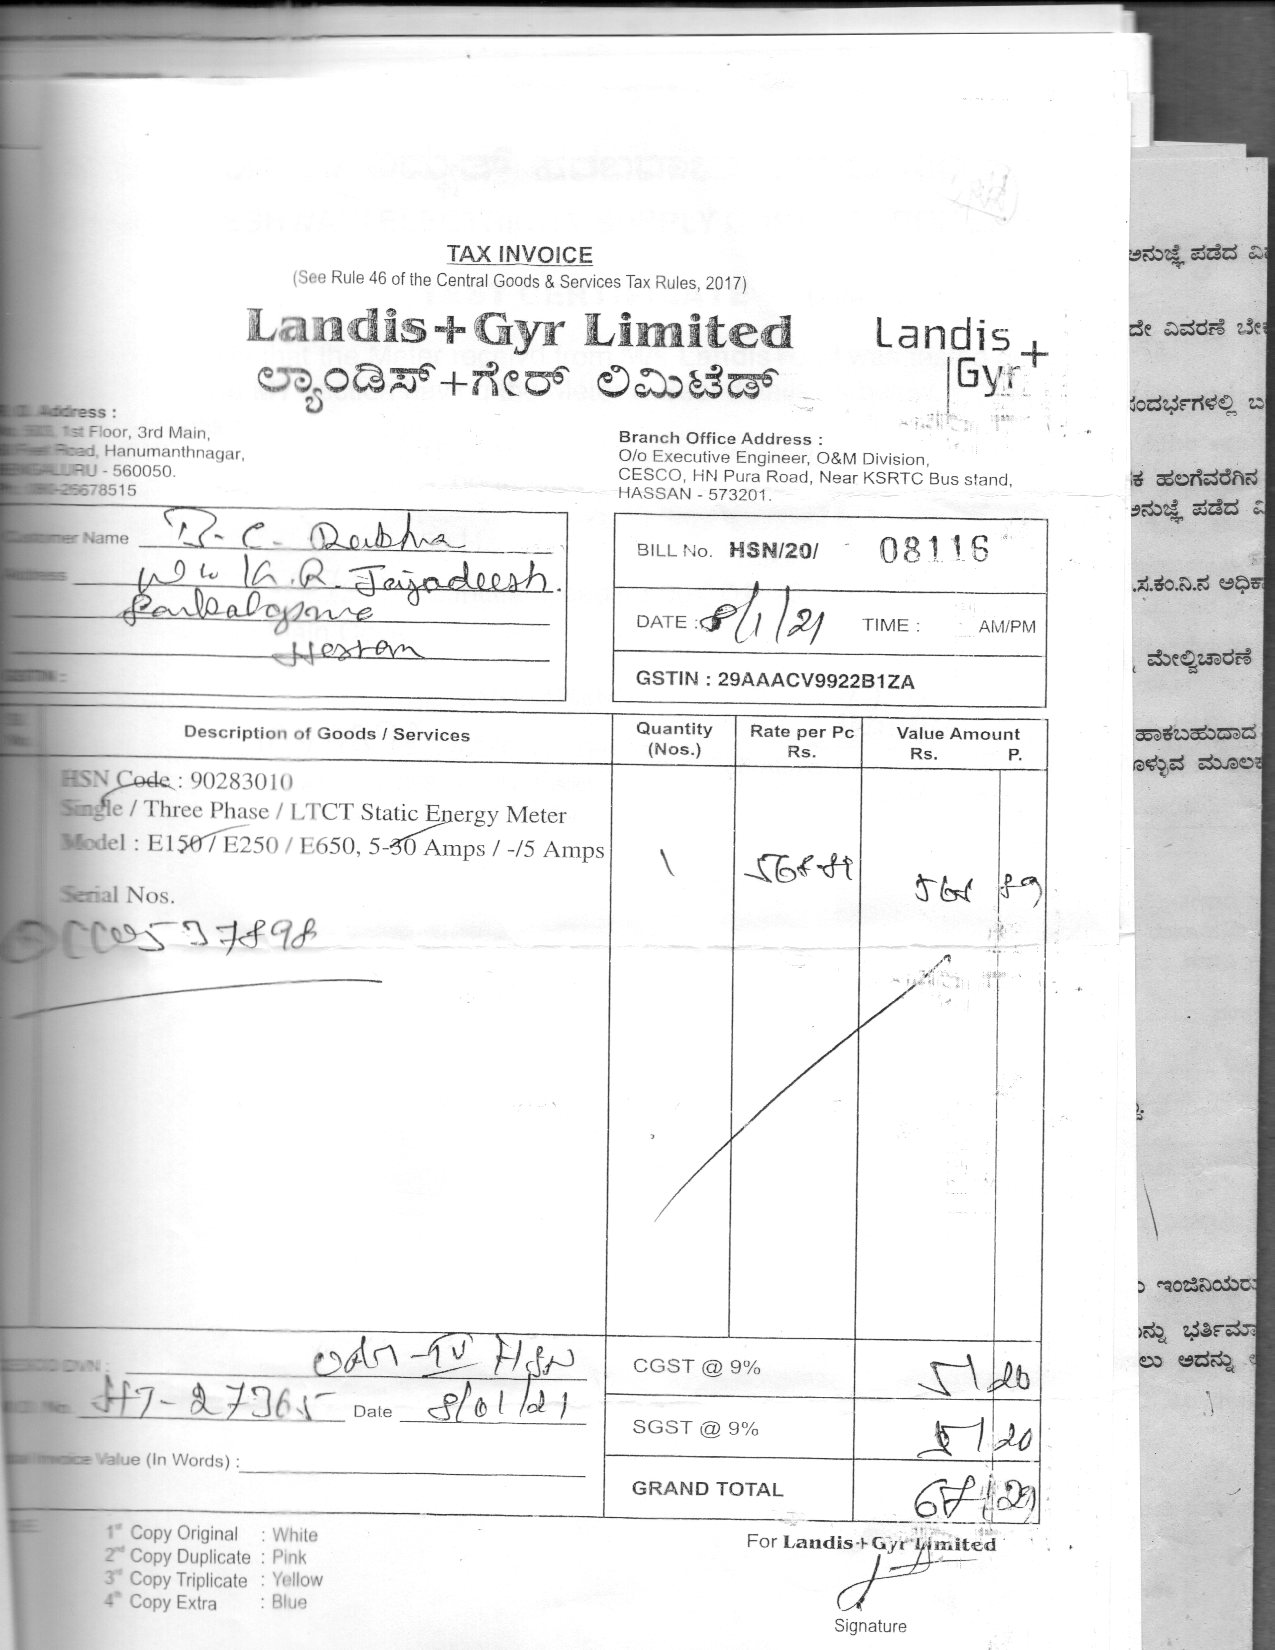 TAX INVOICE
(See Rule 46 of the Central Goods & Services Tax Rules, 2017)
Landis+Gyr Limited
ಲ್ಯಾಂಡಿಸ್+ಗೇರ್ ಲಿಮಿಟೆಡ್
Landis
Gyr+
Address :
1st Floor, 3rd Main,
Road, Hanumanthnagar,
BENGALURU - 560050.
25678515
Branch Office Address :
O/o Executive Engineer, O&M Division,
CESCO, HN Pura Road, Near KSRTC Bus stand,
HASSAN - 573201.
Customer Name
Address
K.R. Jayadeesh.
Hassan
GSTIN :
BILL No. HSN/20/ 08116
DATE : 8/1/21 TIME : AM/PM
GSTIN : 29AAACV9922B1ZA
Description of Goods / Services
Quantity (Nos.)
Rate per Pc Rs.
Value Amount Rs. P.
HSN Code : 90283010
Single / Three Phase / LTCT Static Energy Meter
Model : E150 / E250 / E650, 5-30 Amps / -/5 Amps
1 568-89 568 89
Serial Nos.
537898
HSN
27365 Date 8/01/21
Invoice Value (In Words) :
CGST @ 9% 51 20
SGST @ 9% 51 20
GRAND TOTAL 671 29
1st Copy Original : White
2nd Copy Duplicate : Pink
3rd Copy Triplicate : Yellow
4th Copy Extra : Blue
For Landis+Gyr Limited
Signature
ಅನುಜ್ಞೆ ಪಡೆದ
ವಿವರಣೆ
ಸಂದರ್ಭಗಳಲ್ಲಿ
ಹಲಗೆವರೆಗಿನ
ಅನುಜ್ಞೆ ಪಡೆದ
ಮೇಲ್ವಿಚಾರಣೆ
ಹಾಕಬಹುದಾದ
ಅದನ್ನು